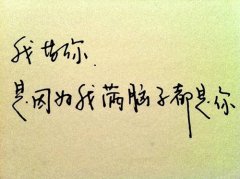 我苦恼.
是因为我满脑子都是你